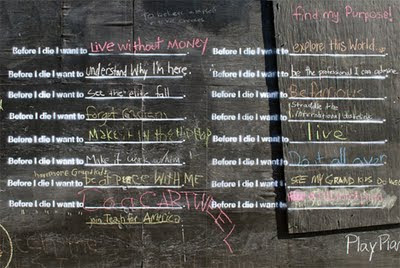 find my Purpose!
Before I die I want to Live without MONEY
Before I die I want to understand Why I'm here.
Before I die I want to See the elite fall
Before I die I want to
Before I die I want to MAKE it in the
Before I die I want to Make it work w/him
Before I die I want to be at PEACE WITH ME
Before I die I want to Do a CARTWHEEL
join Teach for America
Before I die I want to explore this World
Before I die I want to be the professional I can
Before I die I want to Be Famous
Before I die I want to Straddle the international dateline
Before I die I want to live
Before I die I want to Do it all over
Before I die I want to SEE MY GRANDKIDS
Before I die I want to
PlayPla